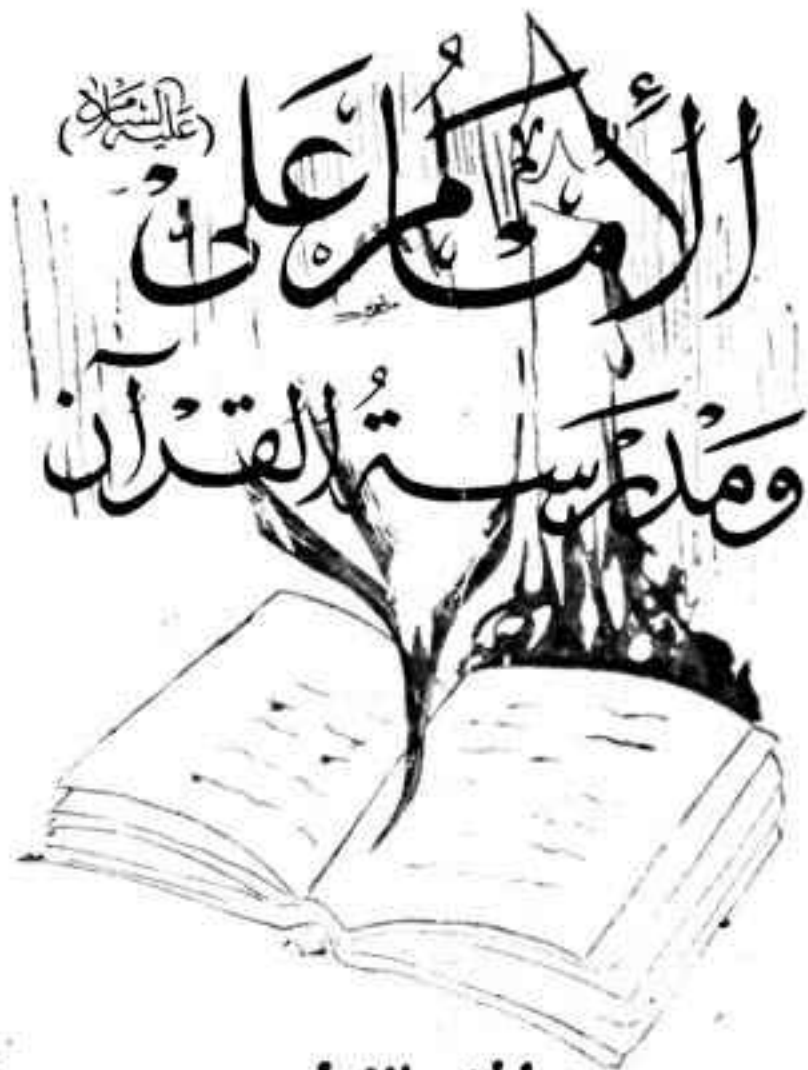 الأمام علي
(عليه السلام)
ومدرسة القرآن